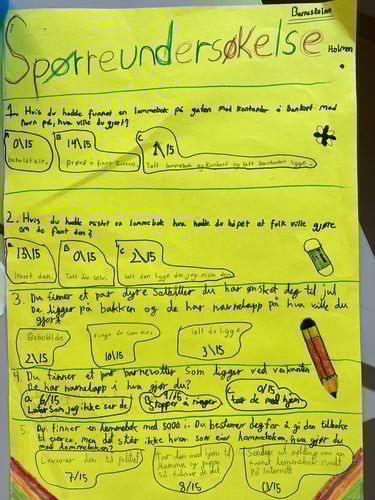 Barneskolen
Spørreundersøkelse
Holmen
1. Hvis du hadde funnet en lommebok på gaten med kontanter å bankort med
navn på, hva ville du gjort?
A 0/15
beholdt alt.
B 14/15
prøvd å finne eieren.
C 1/15
Tatt lommebok og kontant og latt bankortet ligge.
2. Hvis du hadde mistet en lommebok hva hadde du håpet at folk ville gjøre
om de fant den?
A 13/15
levert den.
B 0/15
Tatt den selv.
C 2/15
latt den ligge der jeg miste den
3. Du finner et par dyre solbriller du har ønsket deg til jul
De ligger på bakken og de har navnelapp på hva vil du
gjør?
Beholde
2/15
ringe de som eier
10/15
latt de ligge
3/15
4. Du finner et par barnevotter som ligger ved veikanten
De har navnelapp i hva gjør du?
a. 6/15
Later som jeg ikke ser de
B. 9/15
Stopper å rigger
C. 0/15
tar de med hjem
5. Du finner en lommebok med 5000 i. Du bestemer deg for å gi den tilbake
til eieren, men det står ikke hvem som eier lommeboken, hva gjør du
med lommeboken?
Leverer den til politiet
7/15
Tar den med hjem til
Mamma og pappa
så tilhører de det
8/15
Sender ut melding om en
funnet lommebok rundt
På internet
0/15